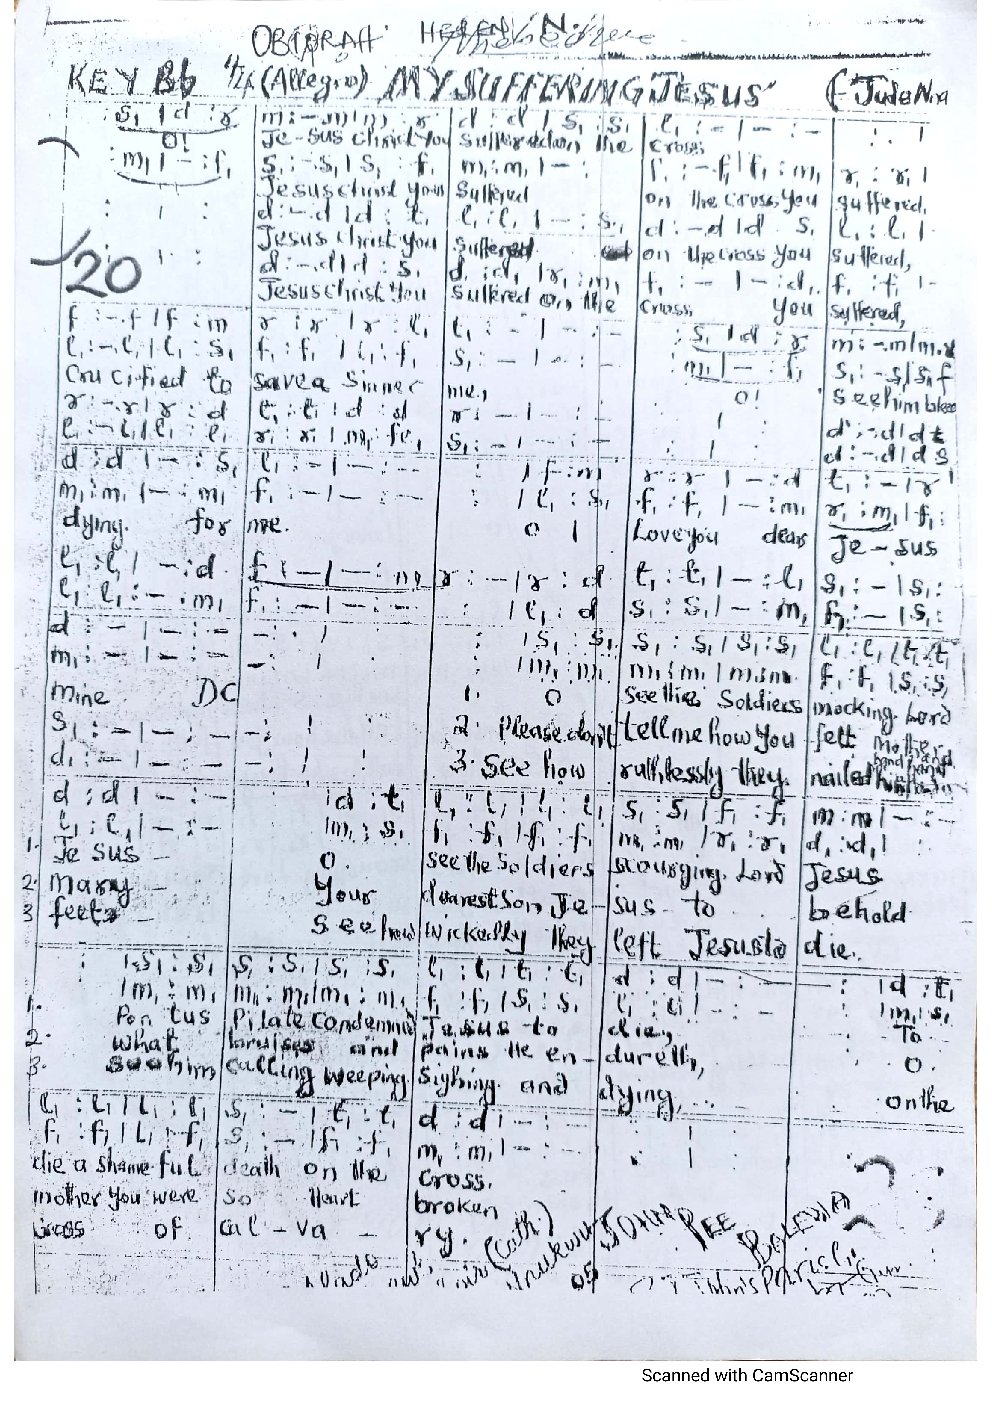 OBIORAH HELEN N.
KEY Bb 4/4 (Allegro) MY SUFFERING JESUS (Jude Nna
s₁ | d : r m : -.m | m : r d : d | s₁ : s₁ l₁ : - | - : - : : |
O! Je-sus Christ you Suffered on the cross
: m₁ | - : f₁ s₁ : -.s₁ | s₁ : f₁ m₁ : m₁ | - : f₁ : -.f₁ | f₁ : m₁ r₁ : r₁ |
Jesus christ you Suffered on the cross, you suffered,
: | : d : -.d | d : t₁ l₁ : l₁ | - : s₁ d : -.d | d s₁ l₁ : l₁ |
Jesus christ you suffered on the cross you suffered,
20 : | : d : -.d | d : s₁ d₁ : d₁ | r₁ : m₁ f₁ : - | - : d₁ f₁ : f₁ | -
Jesus christ you suffered on the cross you suffered,
f : -.f | f : m r : r | r : l₁ t₁ : - | - : - : s₁ | d : r m : -.m | m.r
l₁ : -.l₁ | l₁ : s₁ f₁ : f₁ | l₁ : f₁ s₁ : - | - : - : m₁ | - : f₁ s₁ : -.s | s₁ f
Crucified to save a Sinner me, O! see him bleed
r : -.r | r : d t₁ : t₁ | d : d r : - | - : - : | d : -.d | d t
l₁ : -.l₁ | l₁ : l₁ r₁ : r₁ | m₁ : fe₁ s₁ : - | - : - : | d : -.d | d s
d : d | - : s₁ l₁ : - | - : - : | f : m r : r | - : d t₁ : - | r
m₁ : m₁ | - : m₁ f₁ : - | - : - : | l₁ : s₁ f₁ : f₁ | - : m₁ r₁ : m₁ | f₁ :
dying. for me. O I Love you dear Je-sus
l₁ : l₁ | - : d f : - | - : m r : - | r : d t₁ : t₁ | - : l₁ s₁ : - | s₁ :
l₁ l₁ : - : m₁ f₁ : - | - : - : | l₁ : d s₁ : s₁ | - : m₁ f₁ : - | s₁ :
d : - | - : - - : | : | s₁ : s₁ s₁ : s₁ | s₁ : s₁ l₁ : l₁ | t₁ : t₁
m₁ : - | - : - - : | : | m₁ : m₁ m₁ : m₁ | m₁ : m₁ f₁ : f₁ | s₁ : s₁
mine DC 1. O see the Soldiers mocking Lord
s₁ : - | - : - - : | 2. Please don't tell me how you felt mother
d₁ : - | - : - - : | : 3. See how ruthlessly they nailed his
d : d | - : - | d : t₁ l₁ : l₁ | l₁ : l₁ s₁ : s₁ | f₁ : f₁ m : m | - : -
l₁ : l₁ | - : - | m₁ : s₁ f₁ : f₁ | f₁ : f₁ m₁ : m₁ | r₁ : r₁ d₁ : d₁ |
1. Je sus - O. see the Soldiers scourging Lord Jesus
2. mary - Your dearest Son, Je-sus to behold
3 feets - See how wickedly they left Jesus to die.
: | s₁ : s₁ s₁ : s₁ | s₁ : s₁ l₁ : l₁ | t₁ : t₁ d : d | - : : | d : t₁
| m₁ : m₁ m₁ : m₁ | m₁ : m₁ f₁ : f₁ | s₁ : s₁ l₁ : l₁ | - : : | m₁ s₁
1. Pontus Pilate condemned Jesus to die, To
2. what bruises and pains He en-dureth, O.
3. See him calling weeping. Sighing and dying, on the
l₁ : l₁ | l₁ : l₁ s₁ : - | t₁ : t₁ d : d | - : : |
f₁ : f₁ | l₁ : f₁ s₁ : - | f₁ : f₁ m₁ : m₁ | - : : |
die a shameful death on the cross.
mother you were so Heart broken
cross of cal-va-ry.
(Cath.) JOHN PEE
St John's Parish
Scanned with CamScanner